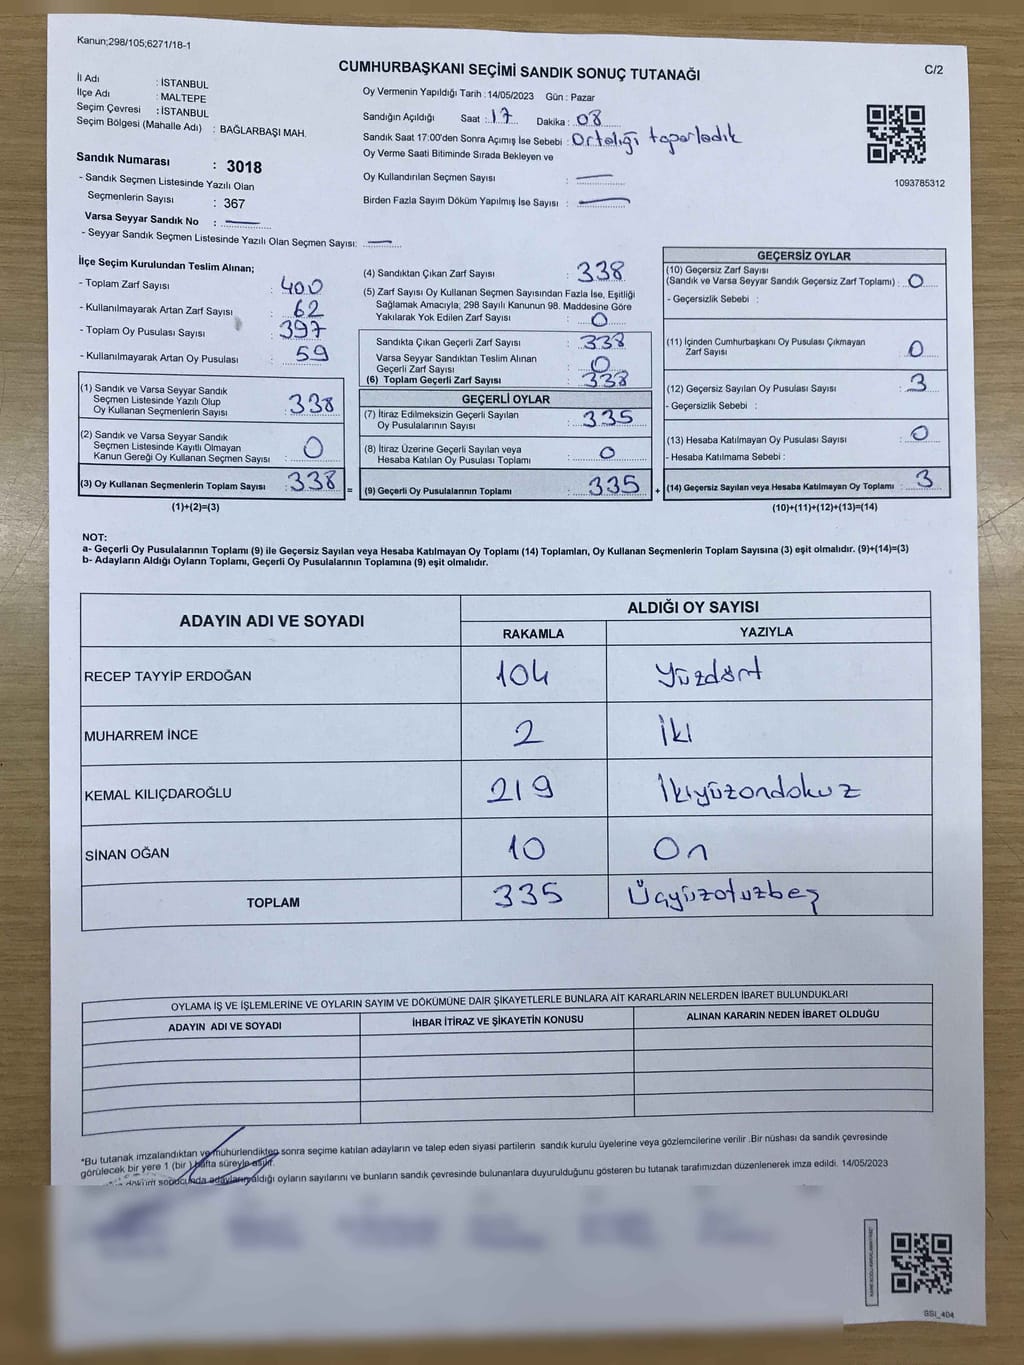 Kanun;298/105;6271/18-1
C/2
CUMHURBAŞKANI SEÇİMİ SANDIK SONUÇ TUTANAĞI
İl Adı : İSTANBUL
İlçe Adı : MALTEPE
Seçim Çevresi : İSTANBUL
Seçim Bölgesi (Mahalle Adı) : BAĞLARBAŞI MAH.
Oy Vermenin Yapıldığı Tarih : 14/05/2023 Gün : Pazar
Sandığın Açıldığı Saat : 17 Dakika : 08
Sandık Saat 17:00'den Sonra Açımış İse Sebebi : Ortalığı toparladık
Oy Verme Saati Bitiminde Sırada Bekleyen ve
Oy Kullandırılan Seçmen Sayısı : —
Birden Fazla Sayım Döküm Yapılmış İse Sayısı : —
1093785312
Sandık Numarası : 3018
- Sandık Seçmen Listesinde Yazılı Olan
Seçmenlerin Sayısı : 367
Varsa Seyyar Sandık No : —
- Seyyar Sandık Seçmen Listesinde Yazılı Olan Seçmen Sayısı: —
İlçe Seçim Kurulundan Teslim Alınan;
- Toplam Zarf Sayısı : 400
- Kullanılmayarak Artan Zarf Sayısı : 62
- Toplam Oy Pusulası Sayısı : 397
- Kullanılmayarak Artan Oy Pusulası : 59
(1) Sandık ve Varsa Seyyar Sandık
Seçmen Listesinde Yazılı Olup
Oy Kullanan Seçmenlerin Sayısı : 338
(2) Sandık ve Varsa Seyyar Sandık
Seçmen Listesinde Kayıtlı Olmayan
Kanun Gereği Oy Kullanan Seçmen Sayısı : 0
(3) Oy Kullanan Seçmenlerin Toplam Sayısı : 338
(1)+(2)=(3)
(4) Sandıktan Çıkan Zarf Sayısı : 338
(5) Zarf Sayısı Oy Kullanan Seçmen Sayısından Fazla İse, Eşitliği
Sağlamak Amacıyla; 298 Sayılı Kanunun 98. Maddesine Göre
Yakılarak Yok Edilen Zarf Sayısı : 0
Sandıkta Çıkan Geçerli Zarf Sayısı : 338
Varsa Seyyar Sandıktan Teslim Alınan
Geçerli Zarf Sayısı : 0
(6) Toplam Geçerli Zarf Sayısı : 338
GEÇERLİ OYLAR
(7) İtiraz Edilmeksizin Geçerli Sayılan
Oy Pusulalarının Sayısı : 335
(8) İtiraz Üzerine Geçerli Sayılan veya
Hesaba Katılan Oy Pusulası Toplamı : 0
= (9) Geçerli Oy Pusulalarının Toplamı : 335 +
GEÇERSİZ OYLAR
(10) Geçersiz Zarf Sayısı
(Sandık ve Varsa Seyyar Sandık Geçersiz Zarf Toplamı) : 0
- Geçersizlik Sebebi :
(11) İçinden Cumhurbaşkanı Oy Pusulası Çıkmayan
Zarf Sayısı : 0
(12) Geçersiz Sayılan Oy Pusulası Sayısı : 3
- Geçersizlik Sebebi :
(13) Hesaba Katılmayan Oy Pusulası Sayısı : 0
- Hesaba Katılmama Sebebi :
(14) Geçersiz Sayılan veya Hesaba Katılmayan Oy Toplamı : 3
(10)+(11)+(12)+(13)=(14)
NOT:
a- Geçerli Oy Pusulalarının Toplamı (9) ile Geçersiz Sayılan veya Hesaba Katılmayan Oy Toplamı (14) Toplamları, Oy Kullanan Seçmenlerin Toplam Sayısına (3) eşit olmalıdır. (9)+(14)=(3)
b- Adayların Aldığı Oyların Toplamı, Geçerli Oy Pusulalarının Toplamına (9) eşit olmalıdır.
ADAYIN ADI VE SOYADI ALDIĞI OY SAYISI
RAKAMLA YAZIYLA
RECEP TAYYİP ERDOĞAN 104 Yüzdört
MUHARREM İNCE 2 İki
KEMAL KILIÇDAROĞLU 219 İkiyüzondokuz
SİNAN OĞAN 10 On
TOPLAM 335 Üçyüzotuzbeş
OYLAMA İŞ VE İŞLEMLERİNE VE OYLARIN SAYIM VE DÖKÜMÜNE DAİR ŞİKAYETLERLE BUNLARA AİT KARARLARIN NELERDEN İBARET BULUNDUKLARI
ADAYIN ADI VE SOYADI İHBAR İTİRAZ VE ŞİKAYETİN KONUSU ALINAN KARARIN NEDEN İBARET OLDUĞU
*Bu tutanak imzalandıktan ve mühürlendikten sonra seçime katılan adayların ve talep eden siyasi partilerin sandık kurulu üyelerine veya gözlemcilerine verilir .Bir nüshası da sandık çevresinde
görülecek bir yere 1 (bir ) hafta süreyle asılır.
döküm sonucunda adayların aldığı oyların sayılarını ve bunların sandık çevresinde bulunanlara duyurulduğunu gösteren bu tutanak tarafımızdan düzenlenerek imza edildi. 14/05/2023
SSI_404